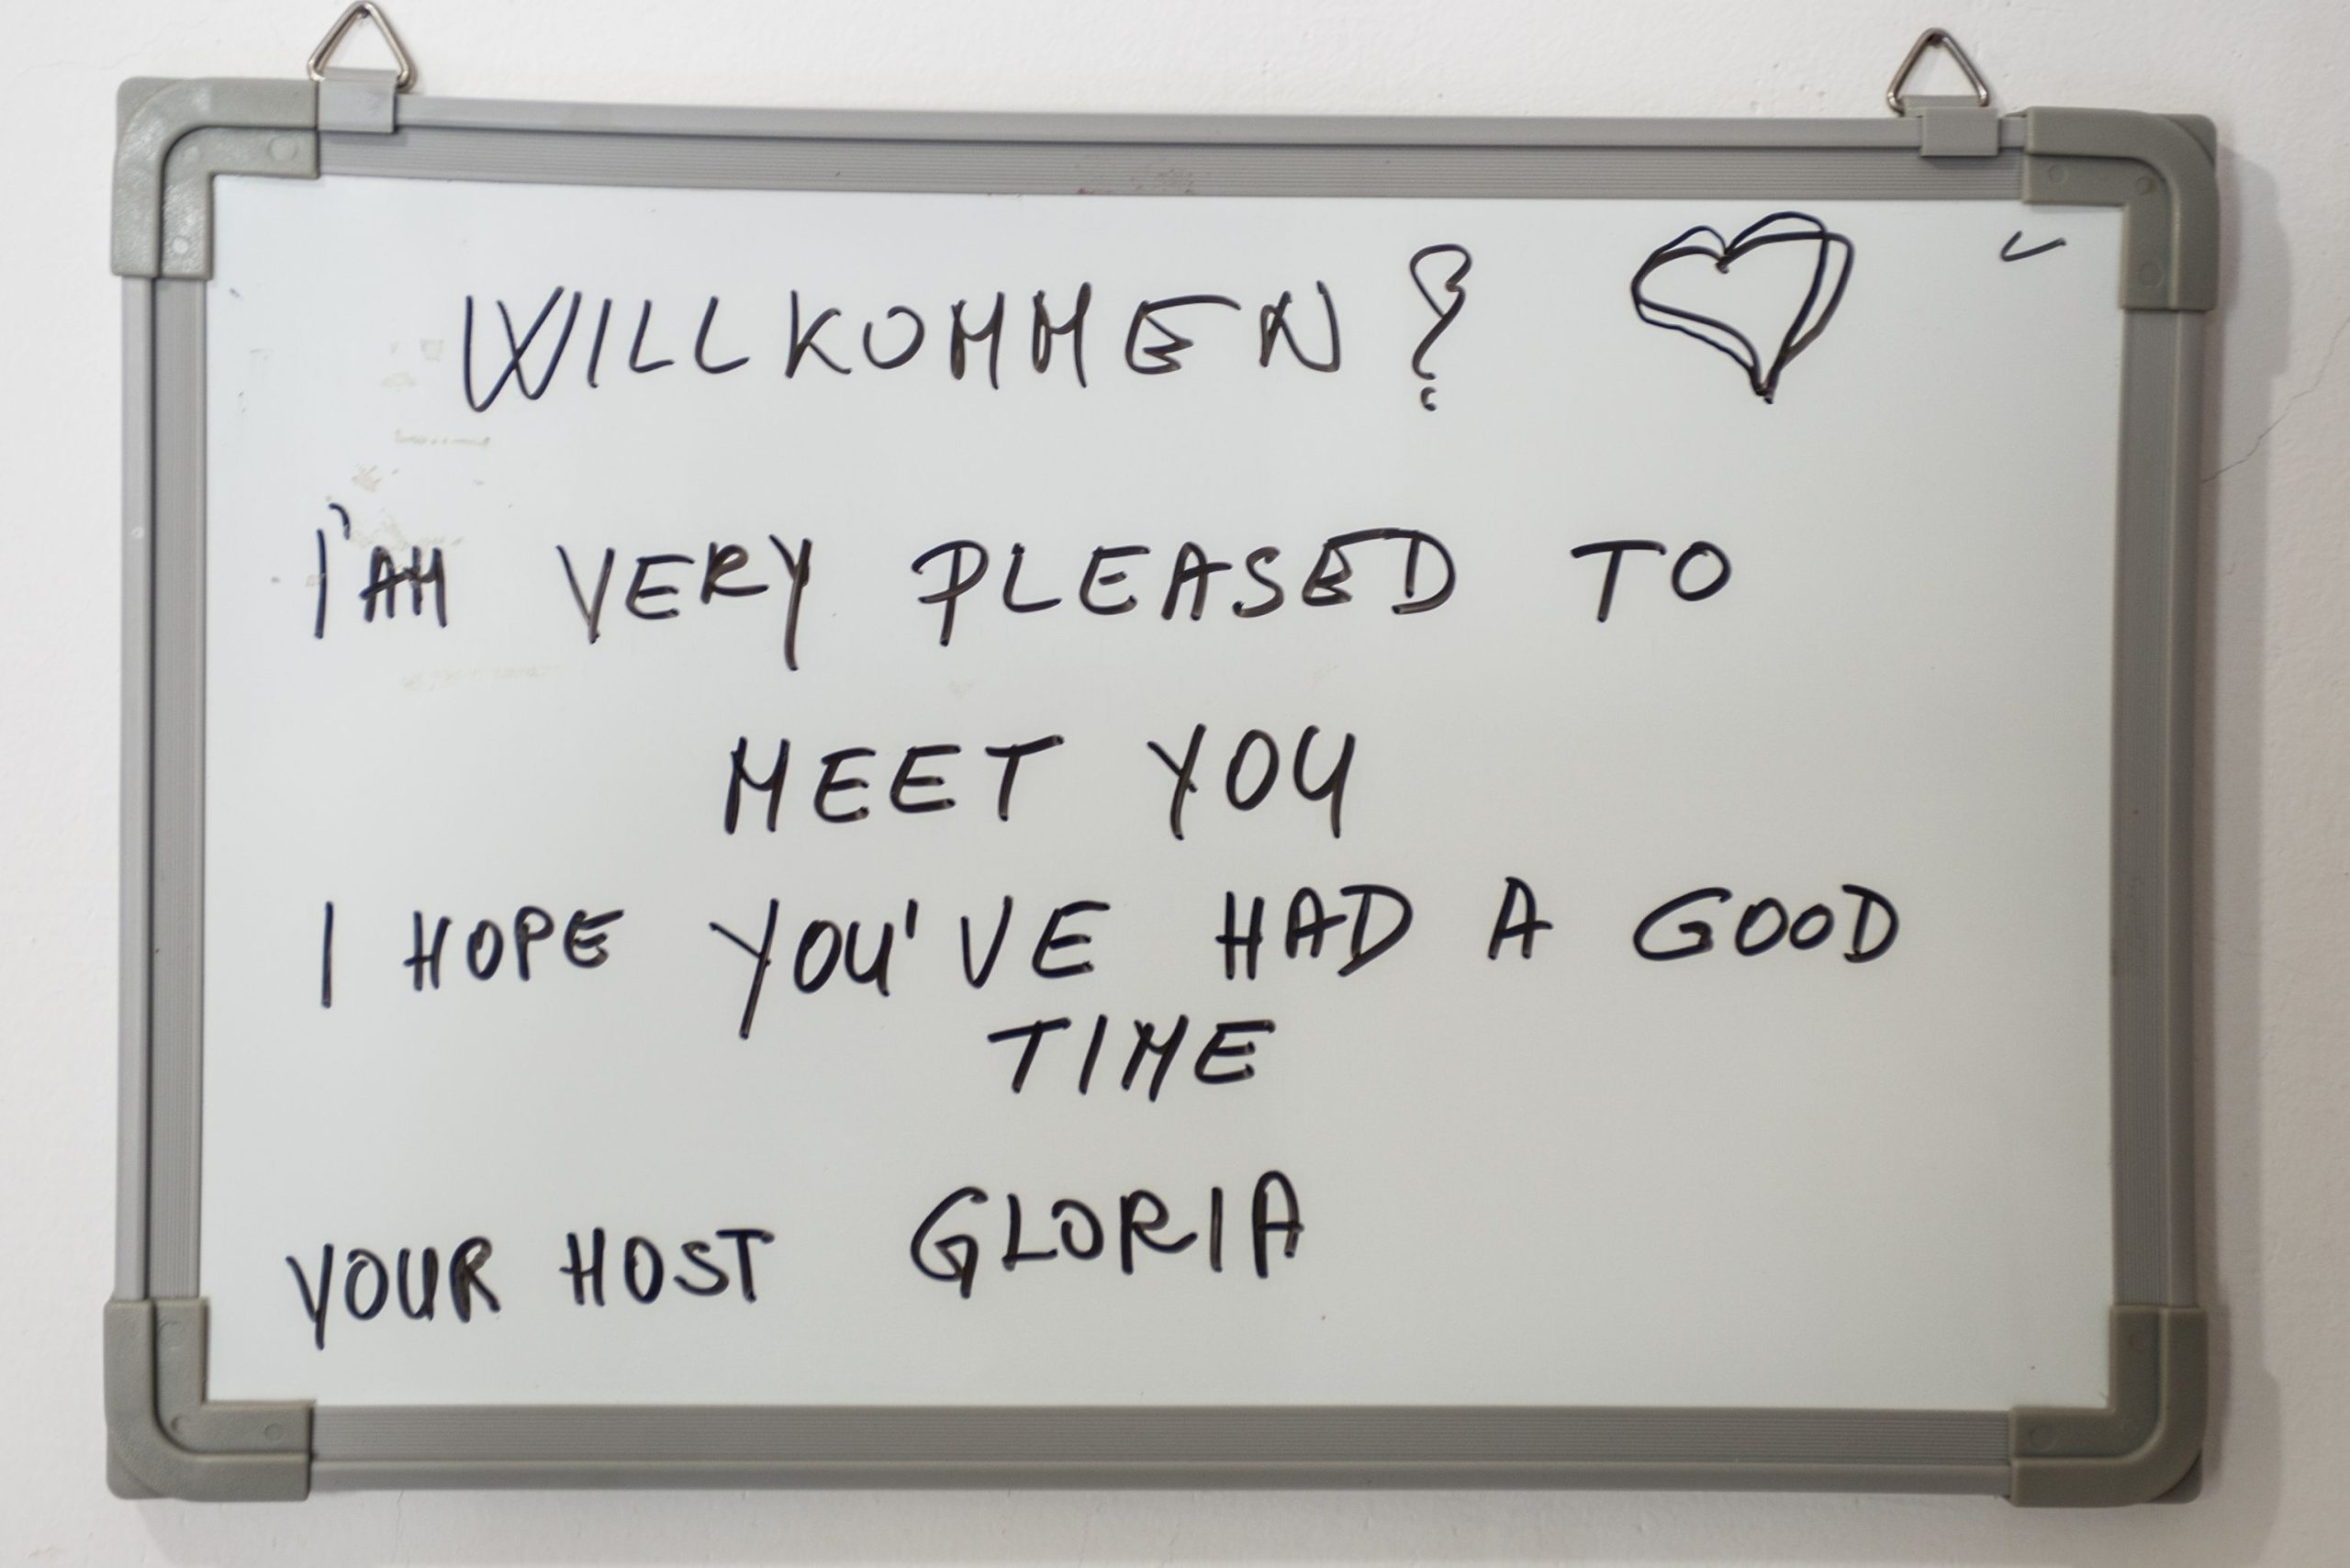 WILLKOMMEN?
I'AM VERY PLEASED TO
MEET YOU
I HOPE YOU'VE HAD A GOOD
TIME
YOUR HOST GLORIA